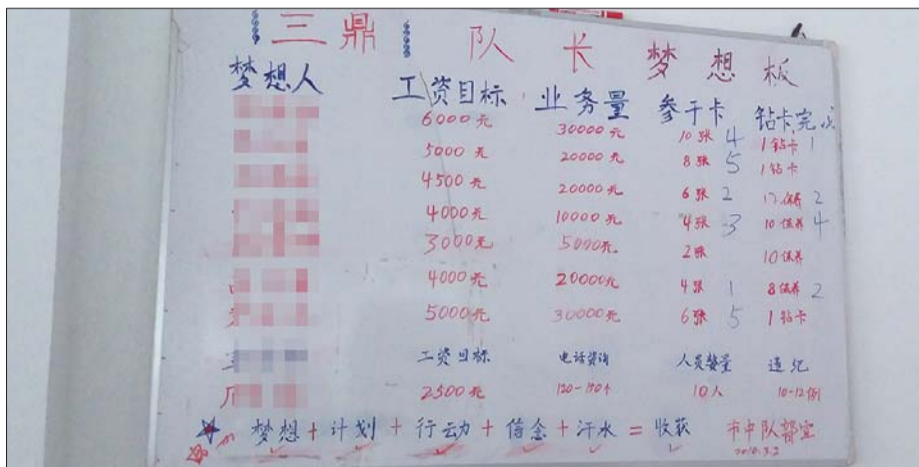 三鼎 队长梦想板
梦想人 工资目标 业务量 参干卡 钻卡完成
6000元 30000元 10张 4 1钻卡 1
5000元 20000元 8张 5 1钻卡
4500元 20000元 6张 2 12保养 2
4000元 10000元 4张 3 10保养 4
3000元 5000元 2张 10保养
4000元 20000元 4张 1 8保养 2
5000元 30000元 6张 5 1钻卡
工资目标 电话资询 人员数量 违纪
2500元 120-150个 10人 10-12例
梦想+计划+行动+信念+汗水=收获 市中队部宣